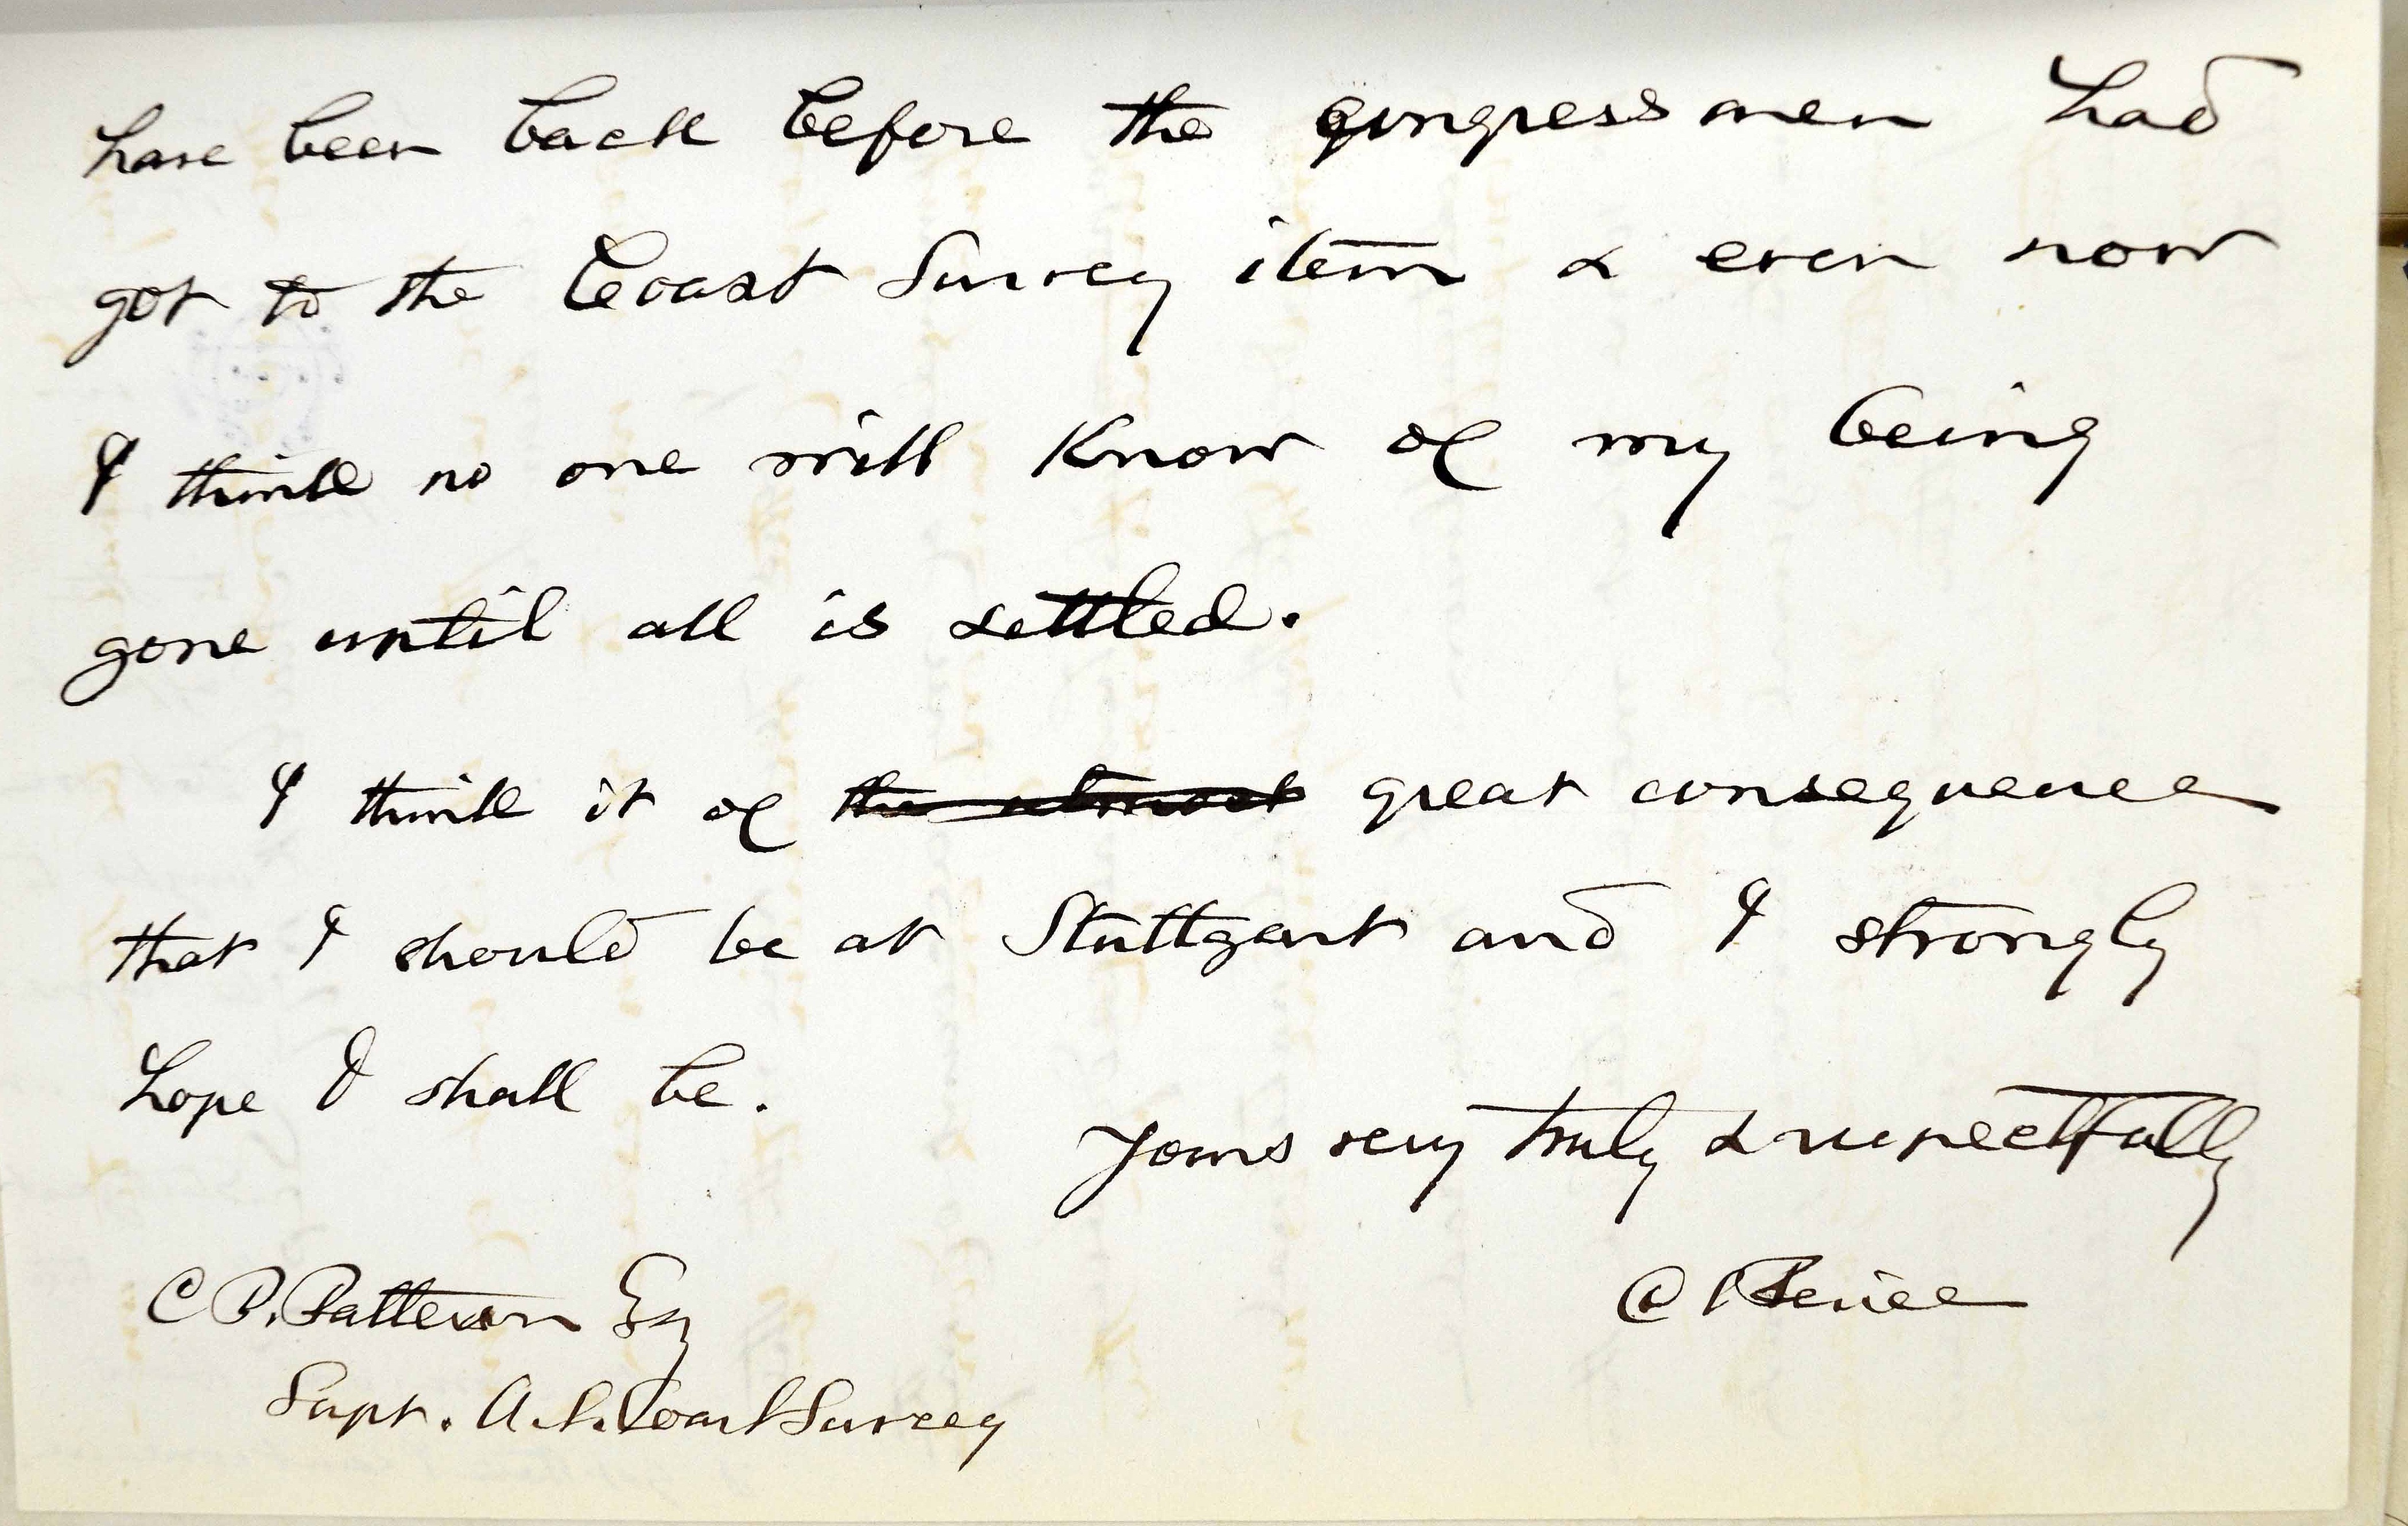 have been back before the congressmen had
got to the Coast Survey item & even now
I think no one will know of my being
gone until all is settled.
I think it of the utmost great consequence
that I should be at Stuttgart and I strongly
hope I shall be.
Yours very truly & respectfully
C S Peirce
C P. Patterson Esq
Supt. U.S. Coast Survey